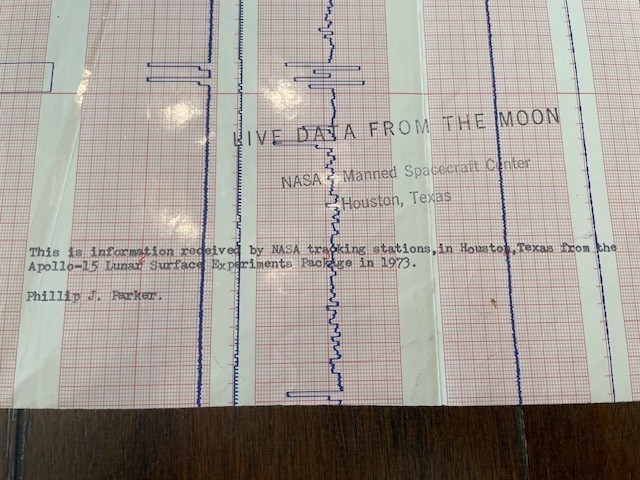 LIVE DATA FROM THE MOON
NASA Manned Spacecraft Center
Houston, Texas
This is information received by NASA tracking stations,in Houston,Texas from the
Apollo-15 Lunar Surface Experiments Package in 1973.
Phillip J. Parker.